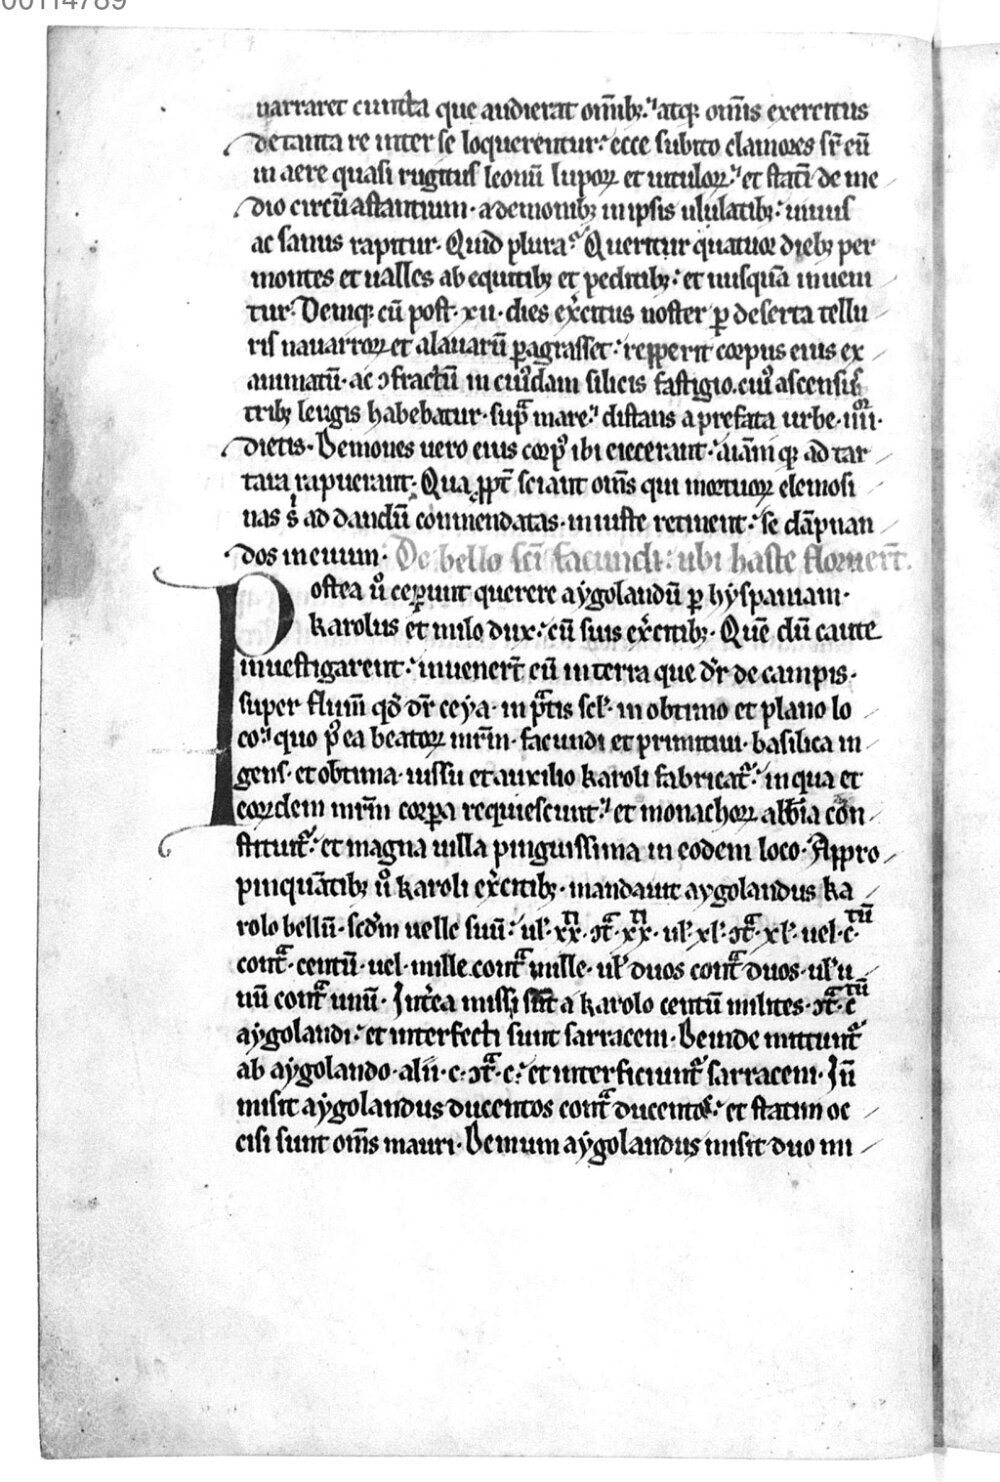 00114789
narraret cuncta que audierat om̄ibꝫ: atqꝫ om̄is exercitus
de tanta re inter se loquerentur: ecce subito clamores sr̄ eū
in aere quasi rugitus leonū luporꝝ et uitulorꝝ: et stati᷑ de me
dio circū astantium · a demonibꝫ in ipsis ululatibꝫ: uiuus
ac sanus rapitur · Quid plura? Queritur quatuor diebꝫ per
montes et ualles ab equitibꝫ et peditibꝫ: et nusquā inueni
tur: Demqꝫ cū post · xii · dies ex̾citus noster ꝑ deserta tellu
ris nauarrorꝝ et alauarū ꝑagrasset: repperit corpus eius ex
animatū · ac ꝯfractū in cuiꝰdam silicis fastigio . cuiꝰ ascensus
tribꝫ leugis habebatur · supᷓ mare: distans a prefata urbe · iiiior ·
dietis · Demones uero eius corpꝰ ibi eiecerant: aīamqꝫ ad tar
tara rapuerant · Qua ꝓpt̄ sciant om̄s qui mortuorꝝ elemosi
nas sⁱ ad dandū commendatas · iniuste retinent: se dāpnan
dos in euum · De bello sc̄i facundi: ubi haste floruer̄t.
Postea u̾o ceperunt querere aygolandū ꝑ hyspaniam ·
karolus et milo dux: cū suis ex̾citibꝫ · Quē dū caute
inuestigarent: inuener̄t eū in terra que dr̄ de campis ·
super fluuī qd̄ dr̄ ceya · in pᷓtis scł · in obtimo et plano lo
co: quo pꝰea beatorꝝ mr̄m · facundi et primitiui · basilica in
gens · et obtima · iussu et auxilio karoli fabricat᷑: in qua et
eorꝝdem mr̄m corꝑa requiescunt: et monachorꝝ abb̄ia con
stituit᷑: et magna uilla pinguissima in eodem loco · Appro
pinquātibꝫ u̾o karoli ex̾citibꝫ · mandauit aygolandus ka
rolo bellū · scd̄m uelle suū: uł · xxti · ꝯtᷓ · xxti · uł · xł · ꝯtᷓ · xł · uel · ctū ·
contᷓ · centū · uel · mille . contᷓ mille · uł duos contᷓ duos · uł u
nū contᷓ unū · Int̾ea missi sunt a karolo centū milites · ꝯtᷓ · ctū
aygolandi: et interfecti sunt sarraceni · Deinde mittunt᷑
ab aygolando · alii · c · ꝯtᷓ · c · et interficiunt᷑ sarraceni · Iū
misit aygolandus ducentos contᷓ ducentos: et statim oc
cisi sunt om̄s mauri · Demum aygolandus misit duo mi